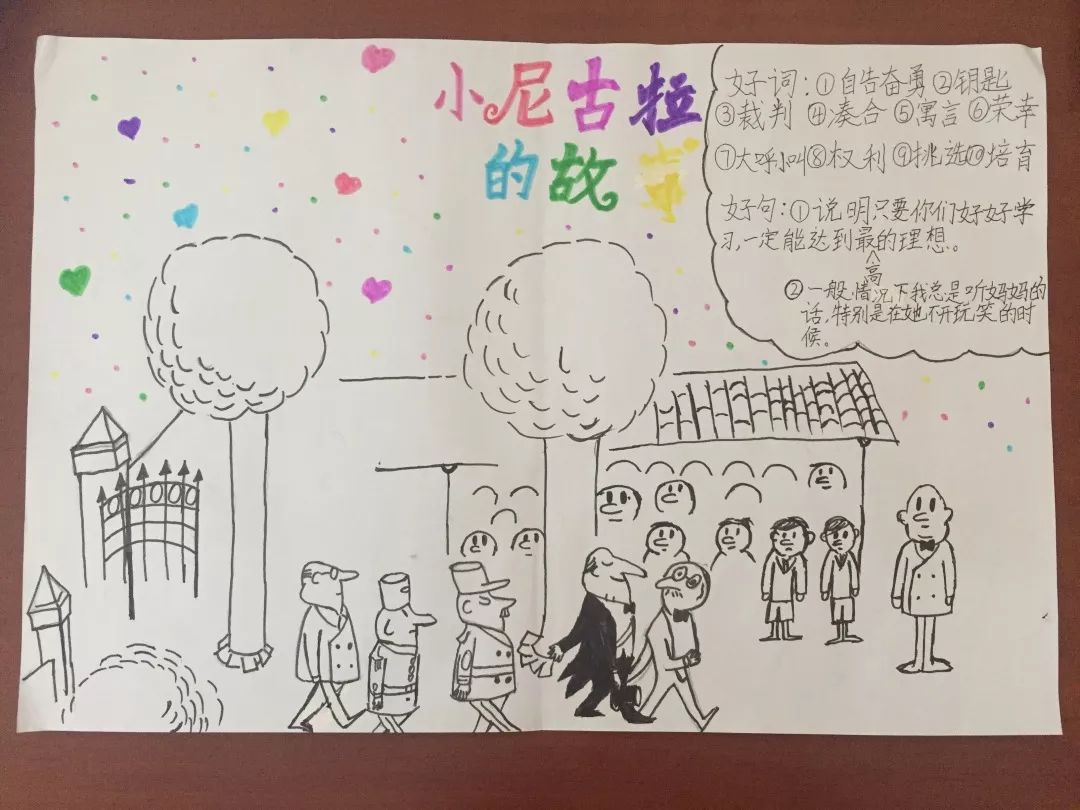 小尼古拉
的故事
好词:①自告奋勇②钥匙
③裁判 ④凑合 ⑤寓言 ⑥荣幸
⑦大呼小叫⑧权利 ⑨挑选⑩培育
好句:①说明只要你们好好学
习,一定能达到最高的理想。
②一般情况下我总是听妈妈的
话,特别是在她不开玩笑的时
候。